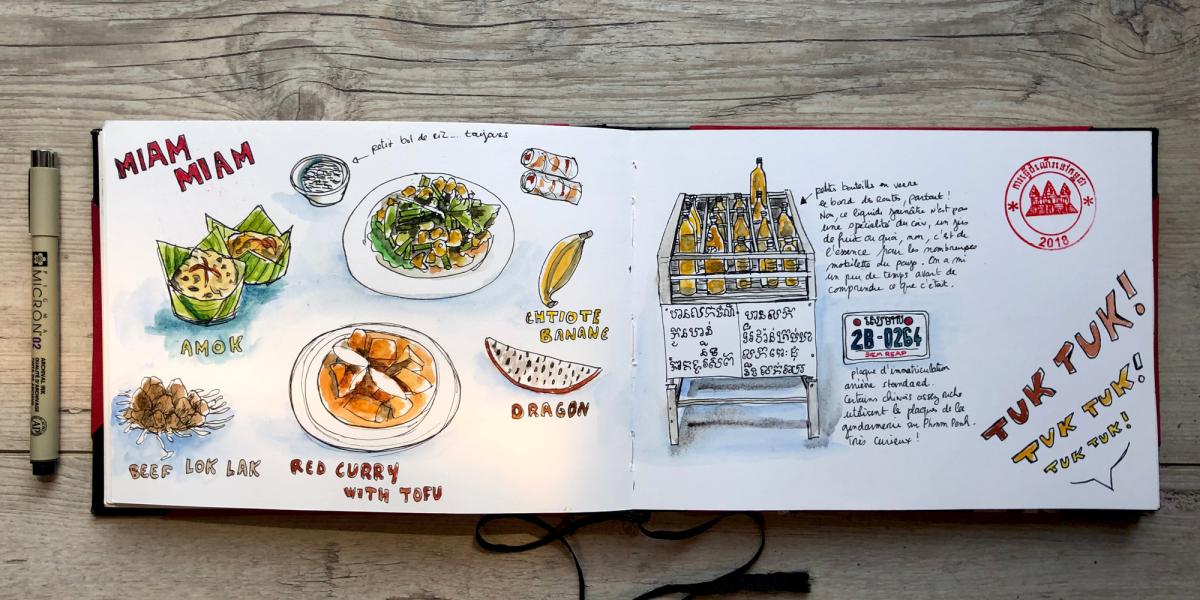 MIAM
MIAM
petit bol de riz... toujours
AMOK
CHTIOTE
BANANE
DRAGON
BEEF LOK LAK
RED CURRY
WITH TOFU
SAKURA
MICRON 02
ARCHIVAL INK
petites bouteilles en verre
le bord des routes, partout!
Non, ce liquide jaunâtre n'est pas
une spécialité du coin, un jus
de fruit ou quoi, non, c'est de
l'essence pour les nombreuses
mobilettes du pays. On a mis
un peu de temps avant de
comprendre ce que c'était.
2B-0264
SIEM REAP
plaque d'immatriculation
arrière standard.
Certains chinois assez riches
utilisent la plaque de la
gendarmerie sur Phnom Penh.
Très curieux!
2018
TUK TUK!
TUK TUK!
TUK TUK!